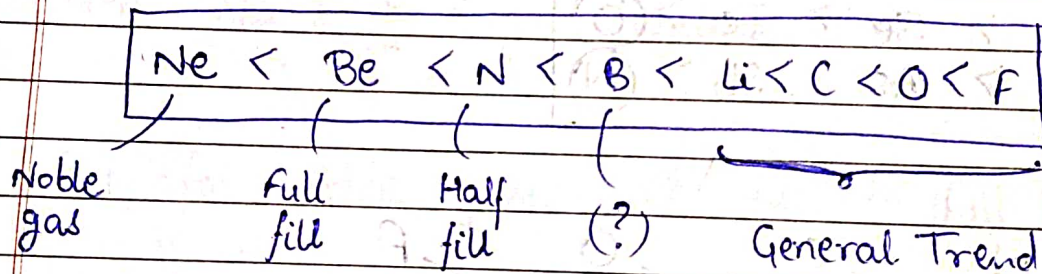 Ne < Be < N < B < Li < C < O < F
Noble gas
Full fill
Half fill
(?)
General Trend